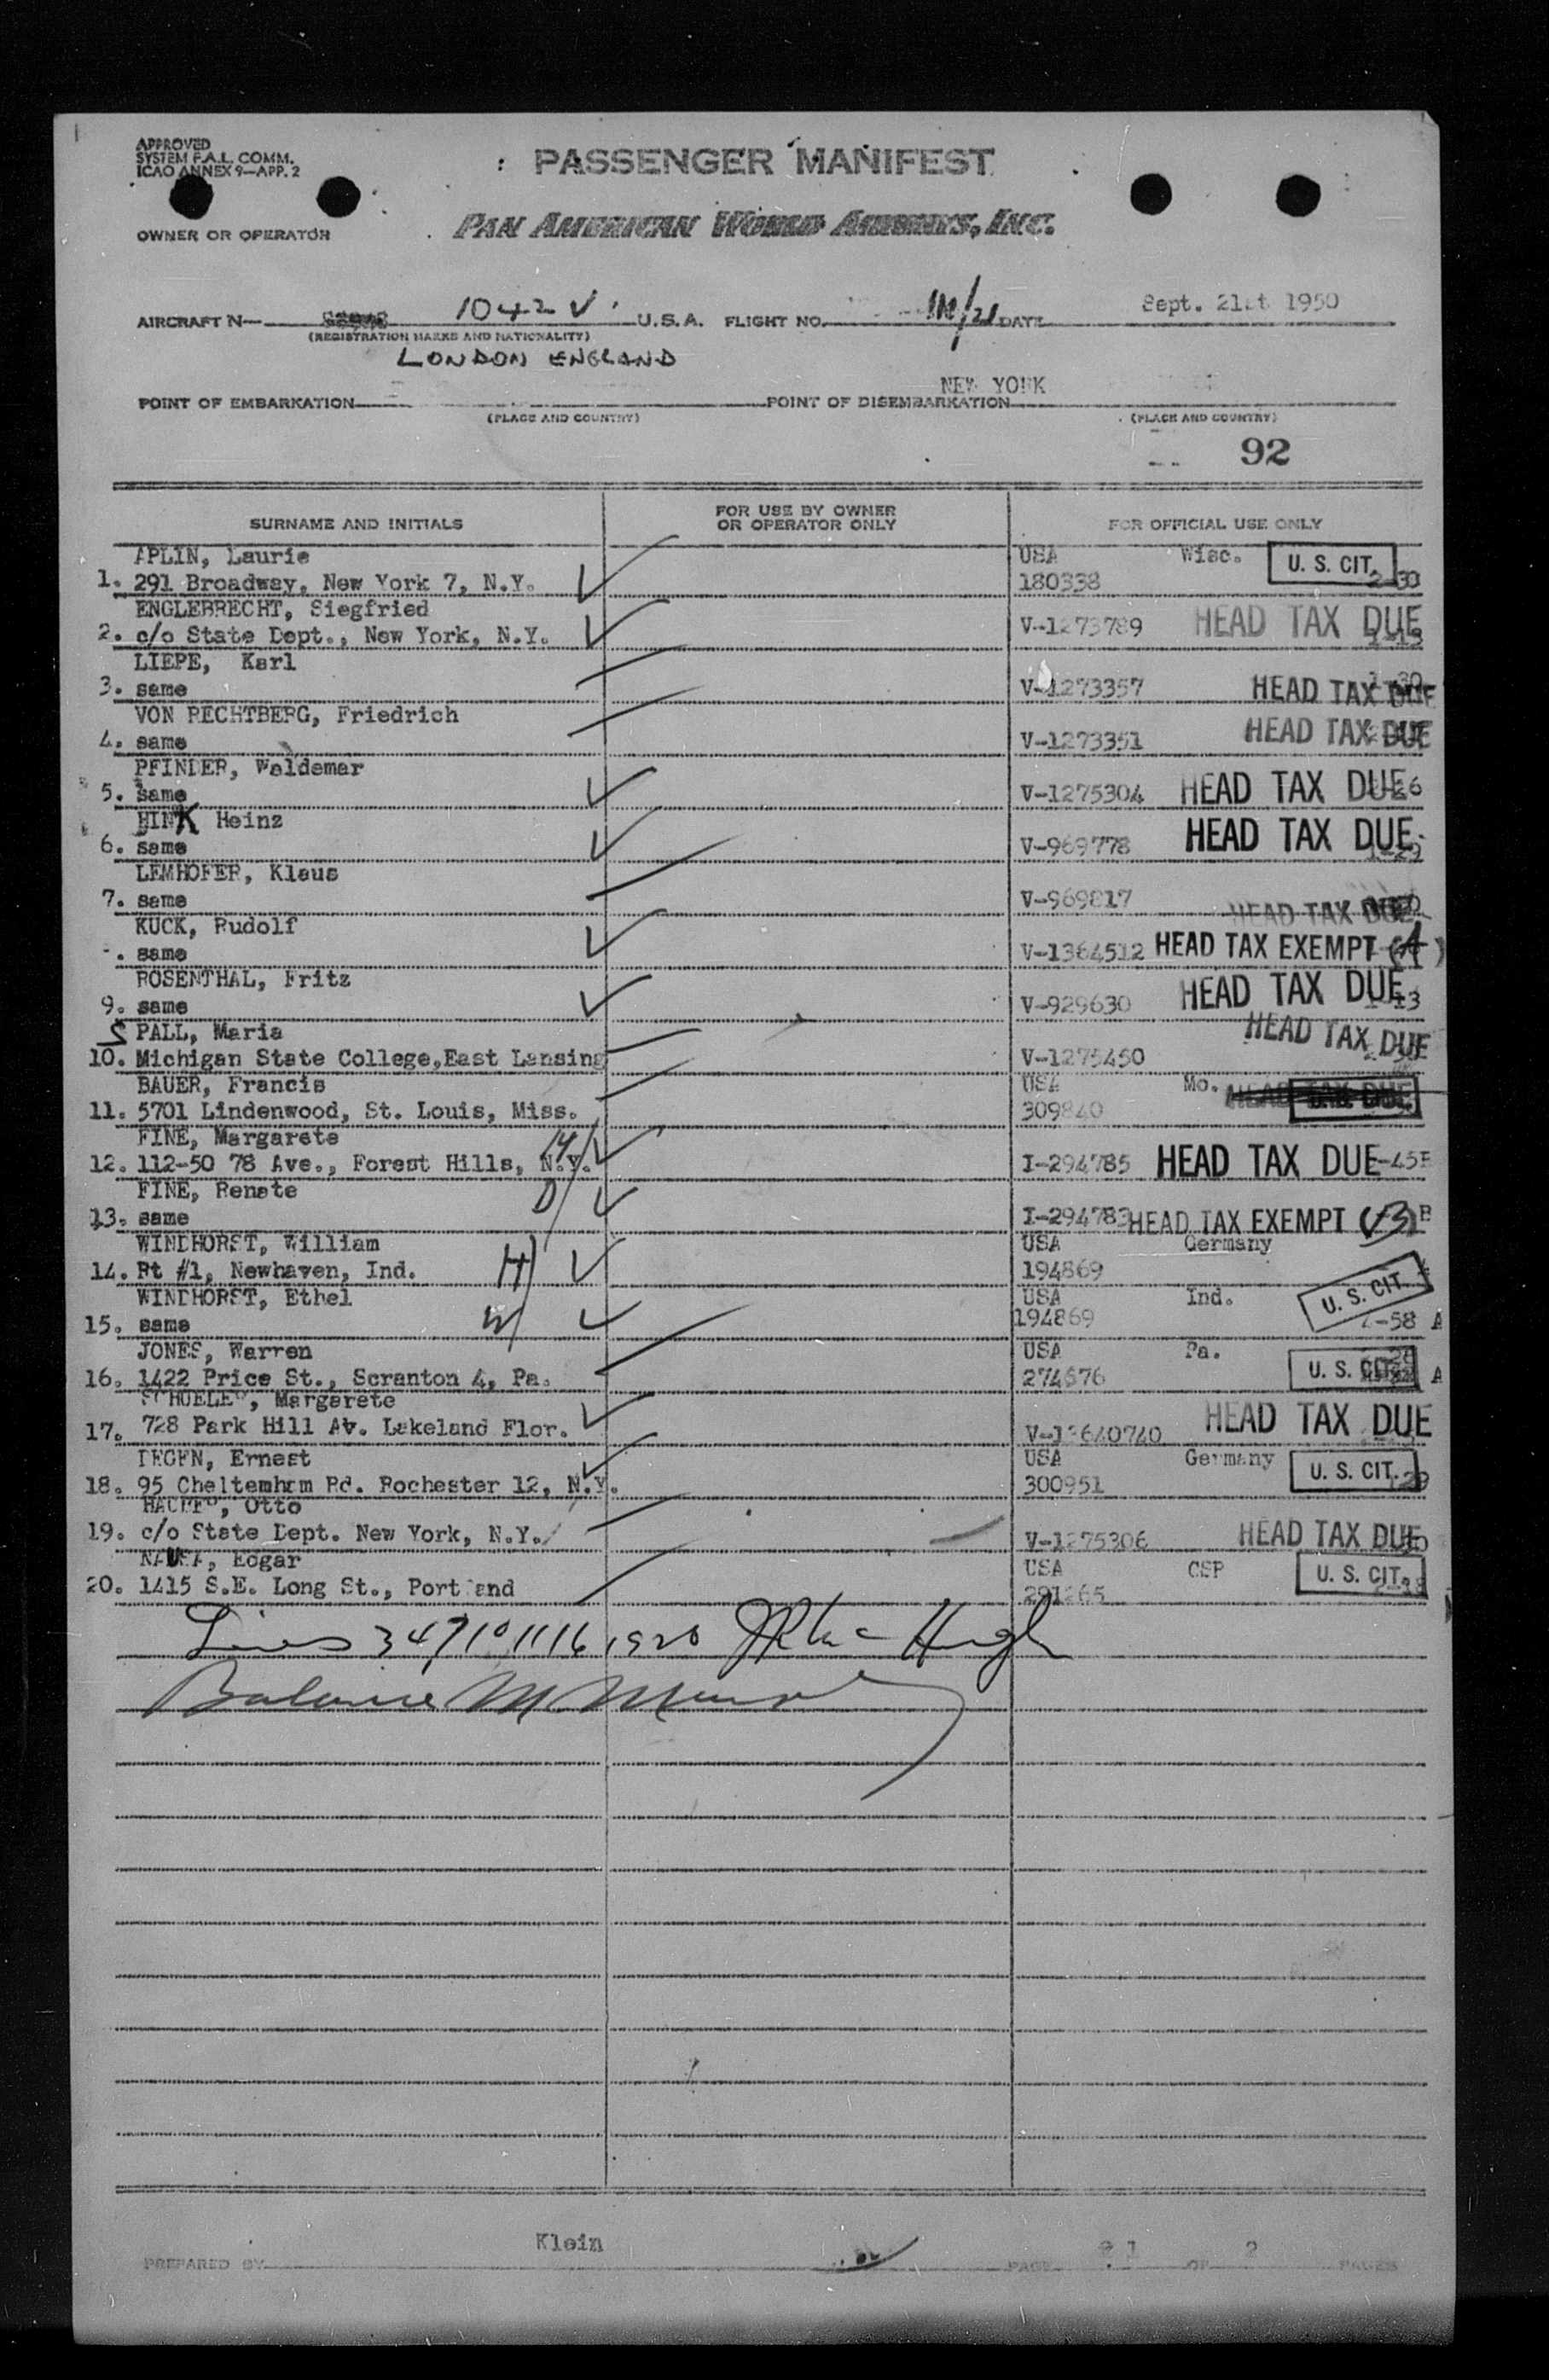 APPROVED
SYSTEM F.A.L. COMM.
ICAO ANNEX 9—APP. 2
PASSENGER MANIFEST
OWNER OR OPERATOR
PAN AMERICAN WORLD AIRWAYS, INC.
AIRCRAFT N— 1042 V U.S.A. FLIGHT NO. /21 DATE Sept. 21st 1950
(REGISTRATION MARKS AND NATIONALITY)
LONDON ENGLAND
NEW YORK
POINT OF EMBARKATION POINT OF DISEMBARKATION
(PLACE AND COUNTRY) (PLACE AND COUNTRY)
92
SURNAME AND INITIALS FOR USE BY OWNER OR OPERATOR ONLY FOR OFFICIAL USE ONLY
APLIN, Laurie USA Wisc. U. S. CIT.
1. 291 Broadway, New York 7, N.Y. 180338 2-30
ENGLEBRECHT, Siegfried
2. c/o State Dept., New York, N.Y. V-1273789 HEAD TAX DUE
LIEPE, Karl
3. same V-1273357 HEAD TAX DUE
VON RECHTBERG, Friedrich
4. same V-1273351 HEAD TAX DUE
PFINDER, Waldemar
5. same V-1275304 HEAD TAX DUE
HINK Heinz
6. same V-969778 HEAD TAX DUE
LEMHOFER, Klaus
7. same V-969817 HEAD TAX DUE
KUCK, Rudolf
. same V-1364512 HEAD TAX EXEMPT (A)
ROSENTHAL, Fritz
9. same V-929630 HEAD TAX DUE
S PALL, Maria
10. Michigan State College,East Lansing V-1275450 HEAD TAX DUE
BAUER, Francis USA Mo.
11. 5701 Lindenwood, St. Louis, Miss. 309840
FINE, Margarete
12. 112-50 78 Ave., Forest Hills, N.Y. I-294785 HEAD TAX DUE
FINE, Renate D
13. same I-294783 HEAD TAX EXEMPT
WINDHORST, William USA Germany
14. Rt #1, Newhaven, Ind. H 194869 U. S. CIT.
WINDHORST, Ethel USA Ind.
15. same W 194869 -58 A
JONES, Warren USA Pa.
16. 1422 Price St., Scranton 4, Pa. 274676 U. S. CIT. A
SCHUELER, Margarete
17. 728 Park Hill Av. Lakeland Flor. V-13640740 HEAD TAX DUE
DEGEN, Ernest USA Germany
18. 95 Cheltemhm Rd. Rochester 12, N.Y. 300951 U. S. CIT.
Otto
19. c/o State Dept. New York, N.Y. V-1275306 HEAD TAX DUE
Edgar USA CSR
20. 1415 S.E. Long St., Portland 291265 U. S. CIT.
Lines 3 4 7 10 11 16 19 20
Balance M
Klein
PREPARED BY PAGE 1 OF 2 PAGES